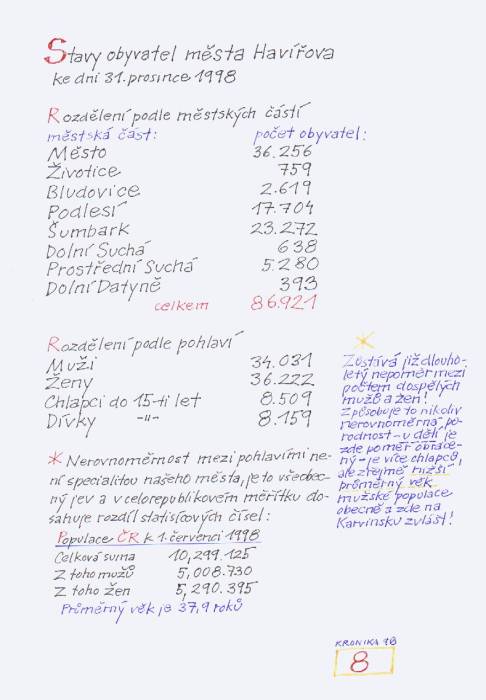 Stavy obyvatel města Havířova
ke dni 31. prosince 1998
Rozdělení podle městských částí
městská část: počet obyvatel:
Město 36.256
Životice 759
Bludovice 2.619
Podlesí 17.704
Šumbark 23.272
Dolní Suchá 638
Prostřední Suchá 5.280
Dolní Datyně 393
celkem 86.921
Rozdělení podle pohlaví
Muži 34.031
Ženy 36.222
Chlapci do 15-ti let 8.509
Dívky -"- 8.159
* Nerovnoměrnost mezi pohlavími ne-
ní specialitou našeho města, je to všeobec-
ný jev a v celorepublikovém měřítku do-
sahuje rozdíl statisícových čísel:
Populace ČR k 1. červenci 1998
Celková suma 10,299.125
Z toho mužů 5,008.730
Z toho žen 5,290.395
Průměrný věk je 37,9 roků
*
Zůstává již dlouho-
letý nepoměr mezi
počtem dospělých
mužů a žen!
Způsobuje to nikoliv
nerovnoměrná po-
rodnost - u dětí je
zde poměr obráce-
ný - je více chlapců,
ale zřejmě nižší
průměrný věk
mužské populace
obecně a zde na
Karvinsku zvlášť!
KRONIKA 98
8